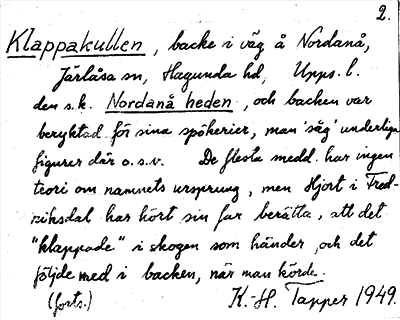 2.
Klappakullen, backe i väg å Nordanå,
Järlåsa sn, Hagunda hd, Upps. l.
den s.k. Nordanå heden, och backen var
beryktad för sina spökerier, man 'såg' underliga
figurer där o.s.v. De flesta medd. har ingen
teori om namnets ursprung, men Hjort i Fred-
riksdal har hört sin far berätta, att det
"klappade" i skogen som händer, och det
följde med i backen, när man körde.
(forts.) K.-H. Tapper 1949.